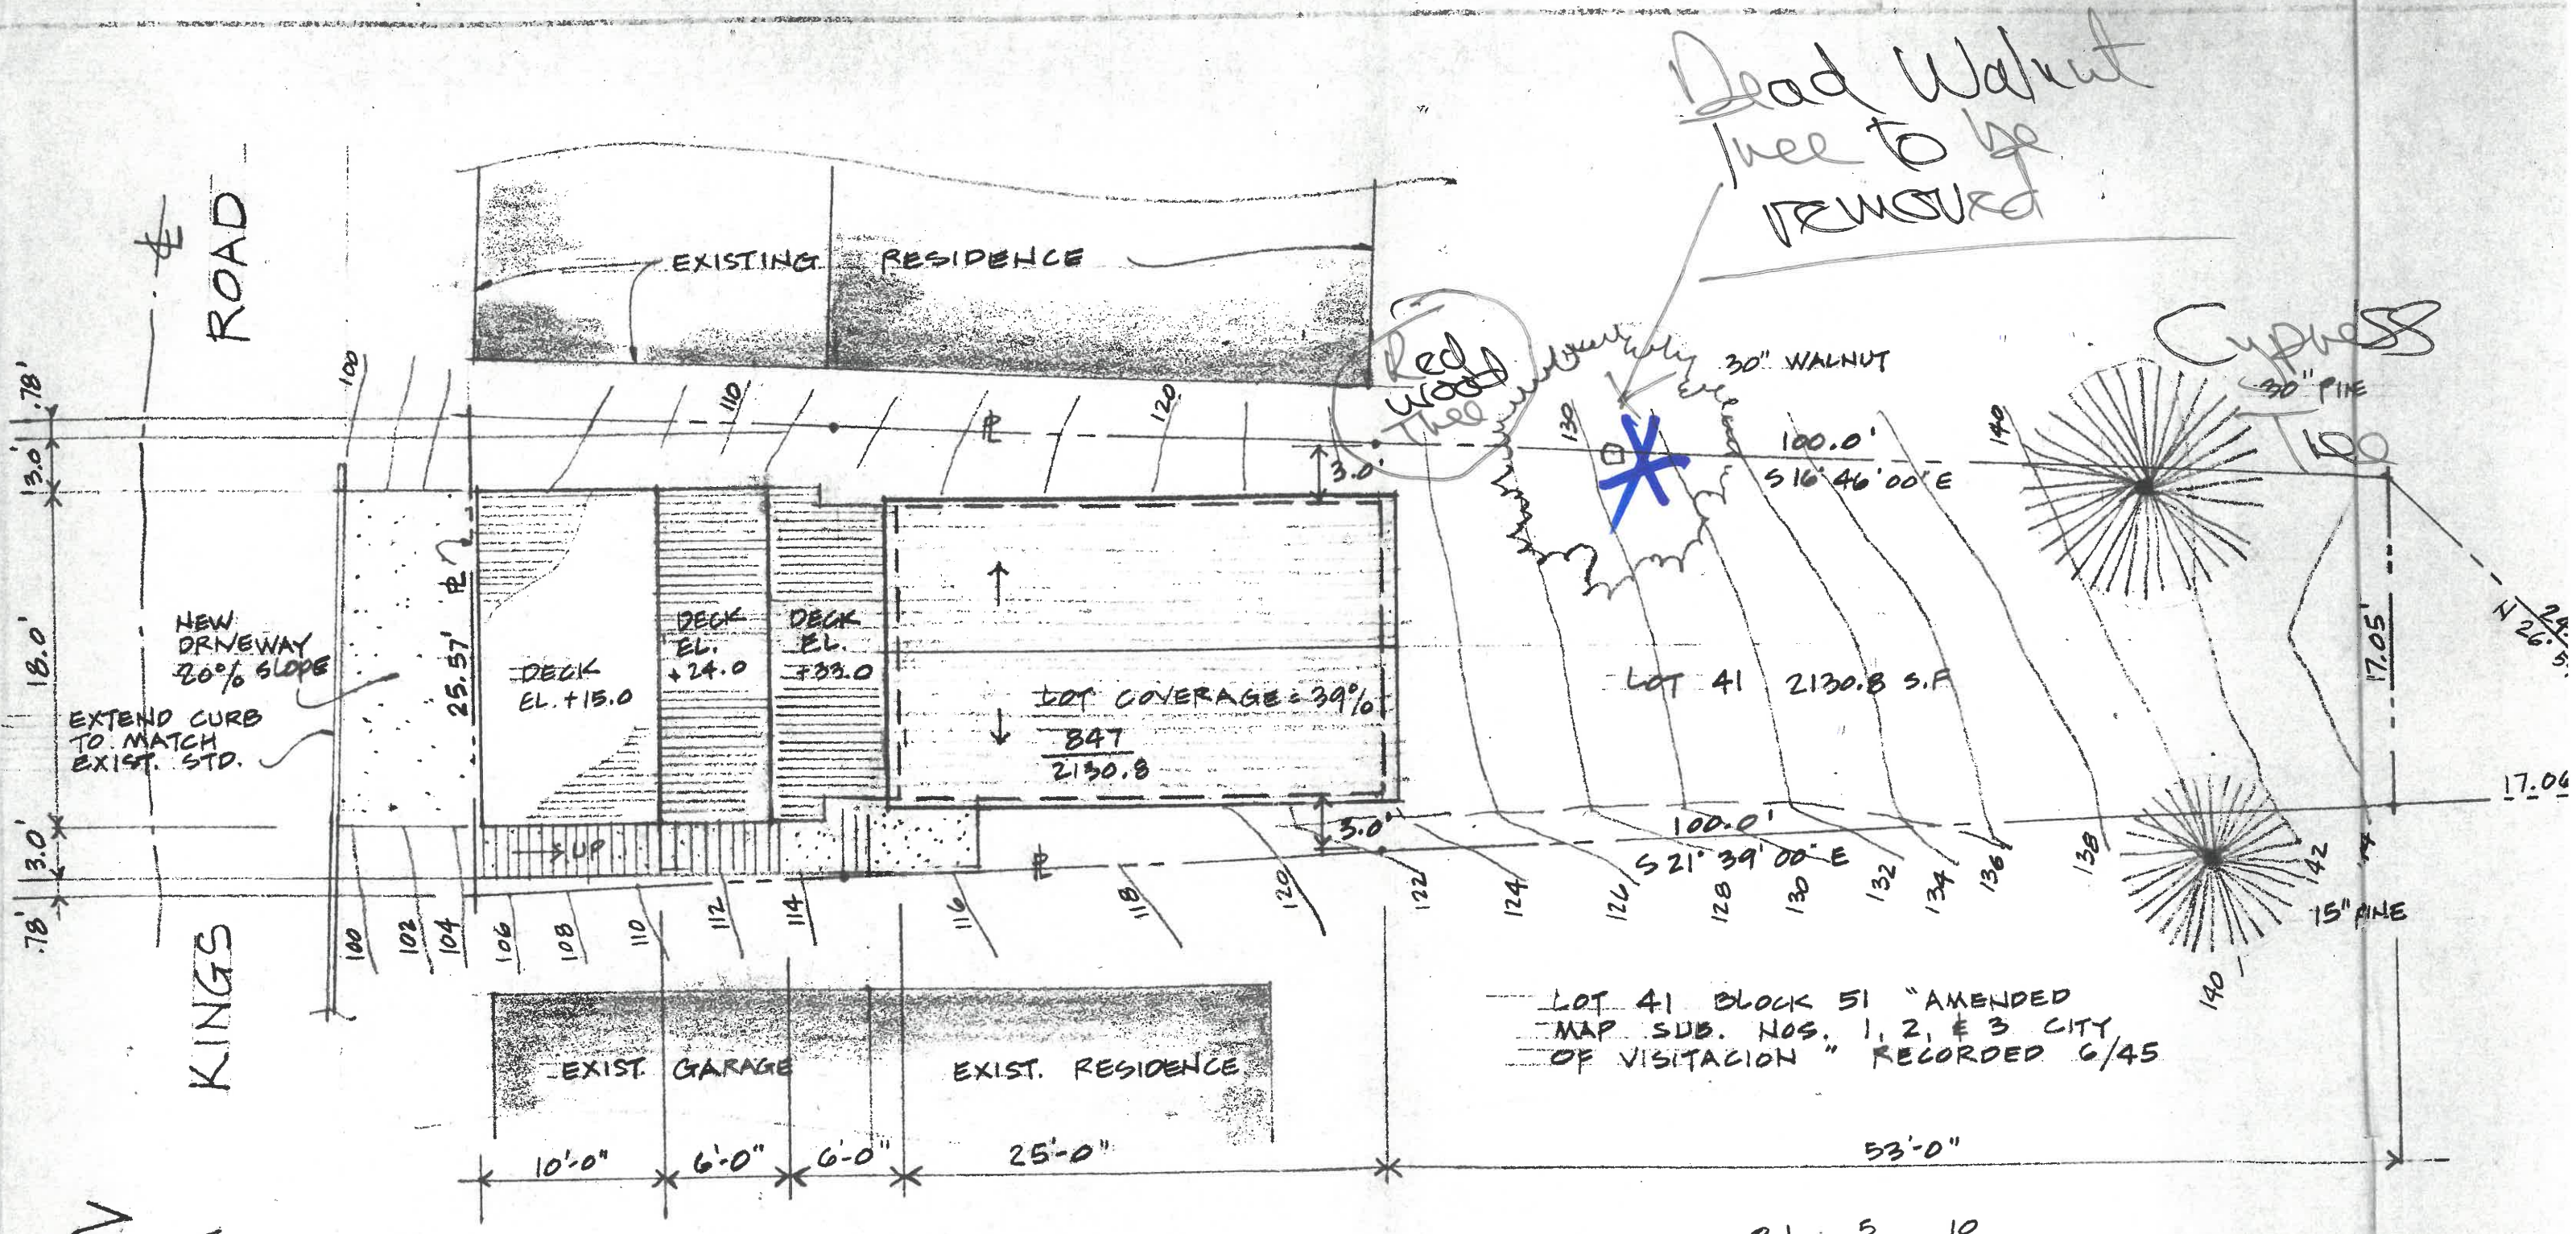 Dead Walnut
Tree to be
removed
ROAD
EXISTING RESIDENCE
Red
wood
Tree
30" WALNUT
Cypress
30" PINE
Tree
.78'
3.0'
18.0'
3.0'
.78'
100
110
120
130
140
℄
℄
3.0'
100.0'
S 16° 46' 00" E
NEW
DRIVEWAY
20% SLOPE
EXTEND CURB
TO MATCH
EXIST. STD.
25.57'
DECK
EL. +15.0
DECK
EL.
+24.0
DECK
EL.
+33.0
LOT COVERAGE = 39%
847
2130.8
LOT 41 2130.8 S.F
17.05'
17.06
UP
3.0'
100.0'
S 21° 39' 00" E
100
102
104
106
108
110
112
114
116
118
120
122
124
126
128
130
132
134
136
138
140
142
15" PINE
KINGS
EXIST. GARAGE
EXIST. RESIDENCE
LOT 41 BLOCK 51 "AMENDED
MAP SUB. NOS. 1, 2, & 3 CITY
OF VISITACION" RECORDED 6/45
10'-0"
6'-0"
6'-0"
25'-0"
53'-0"